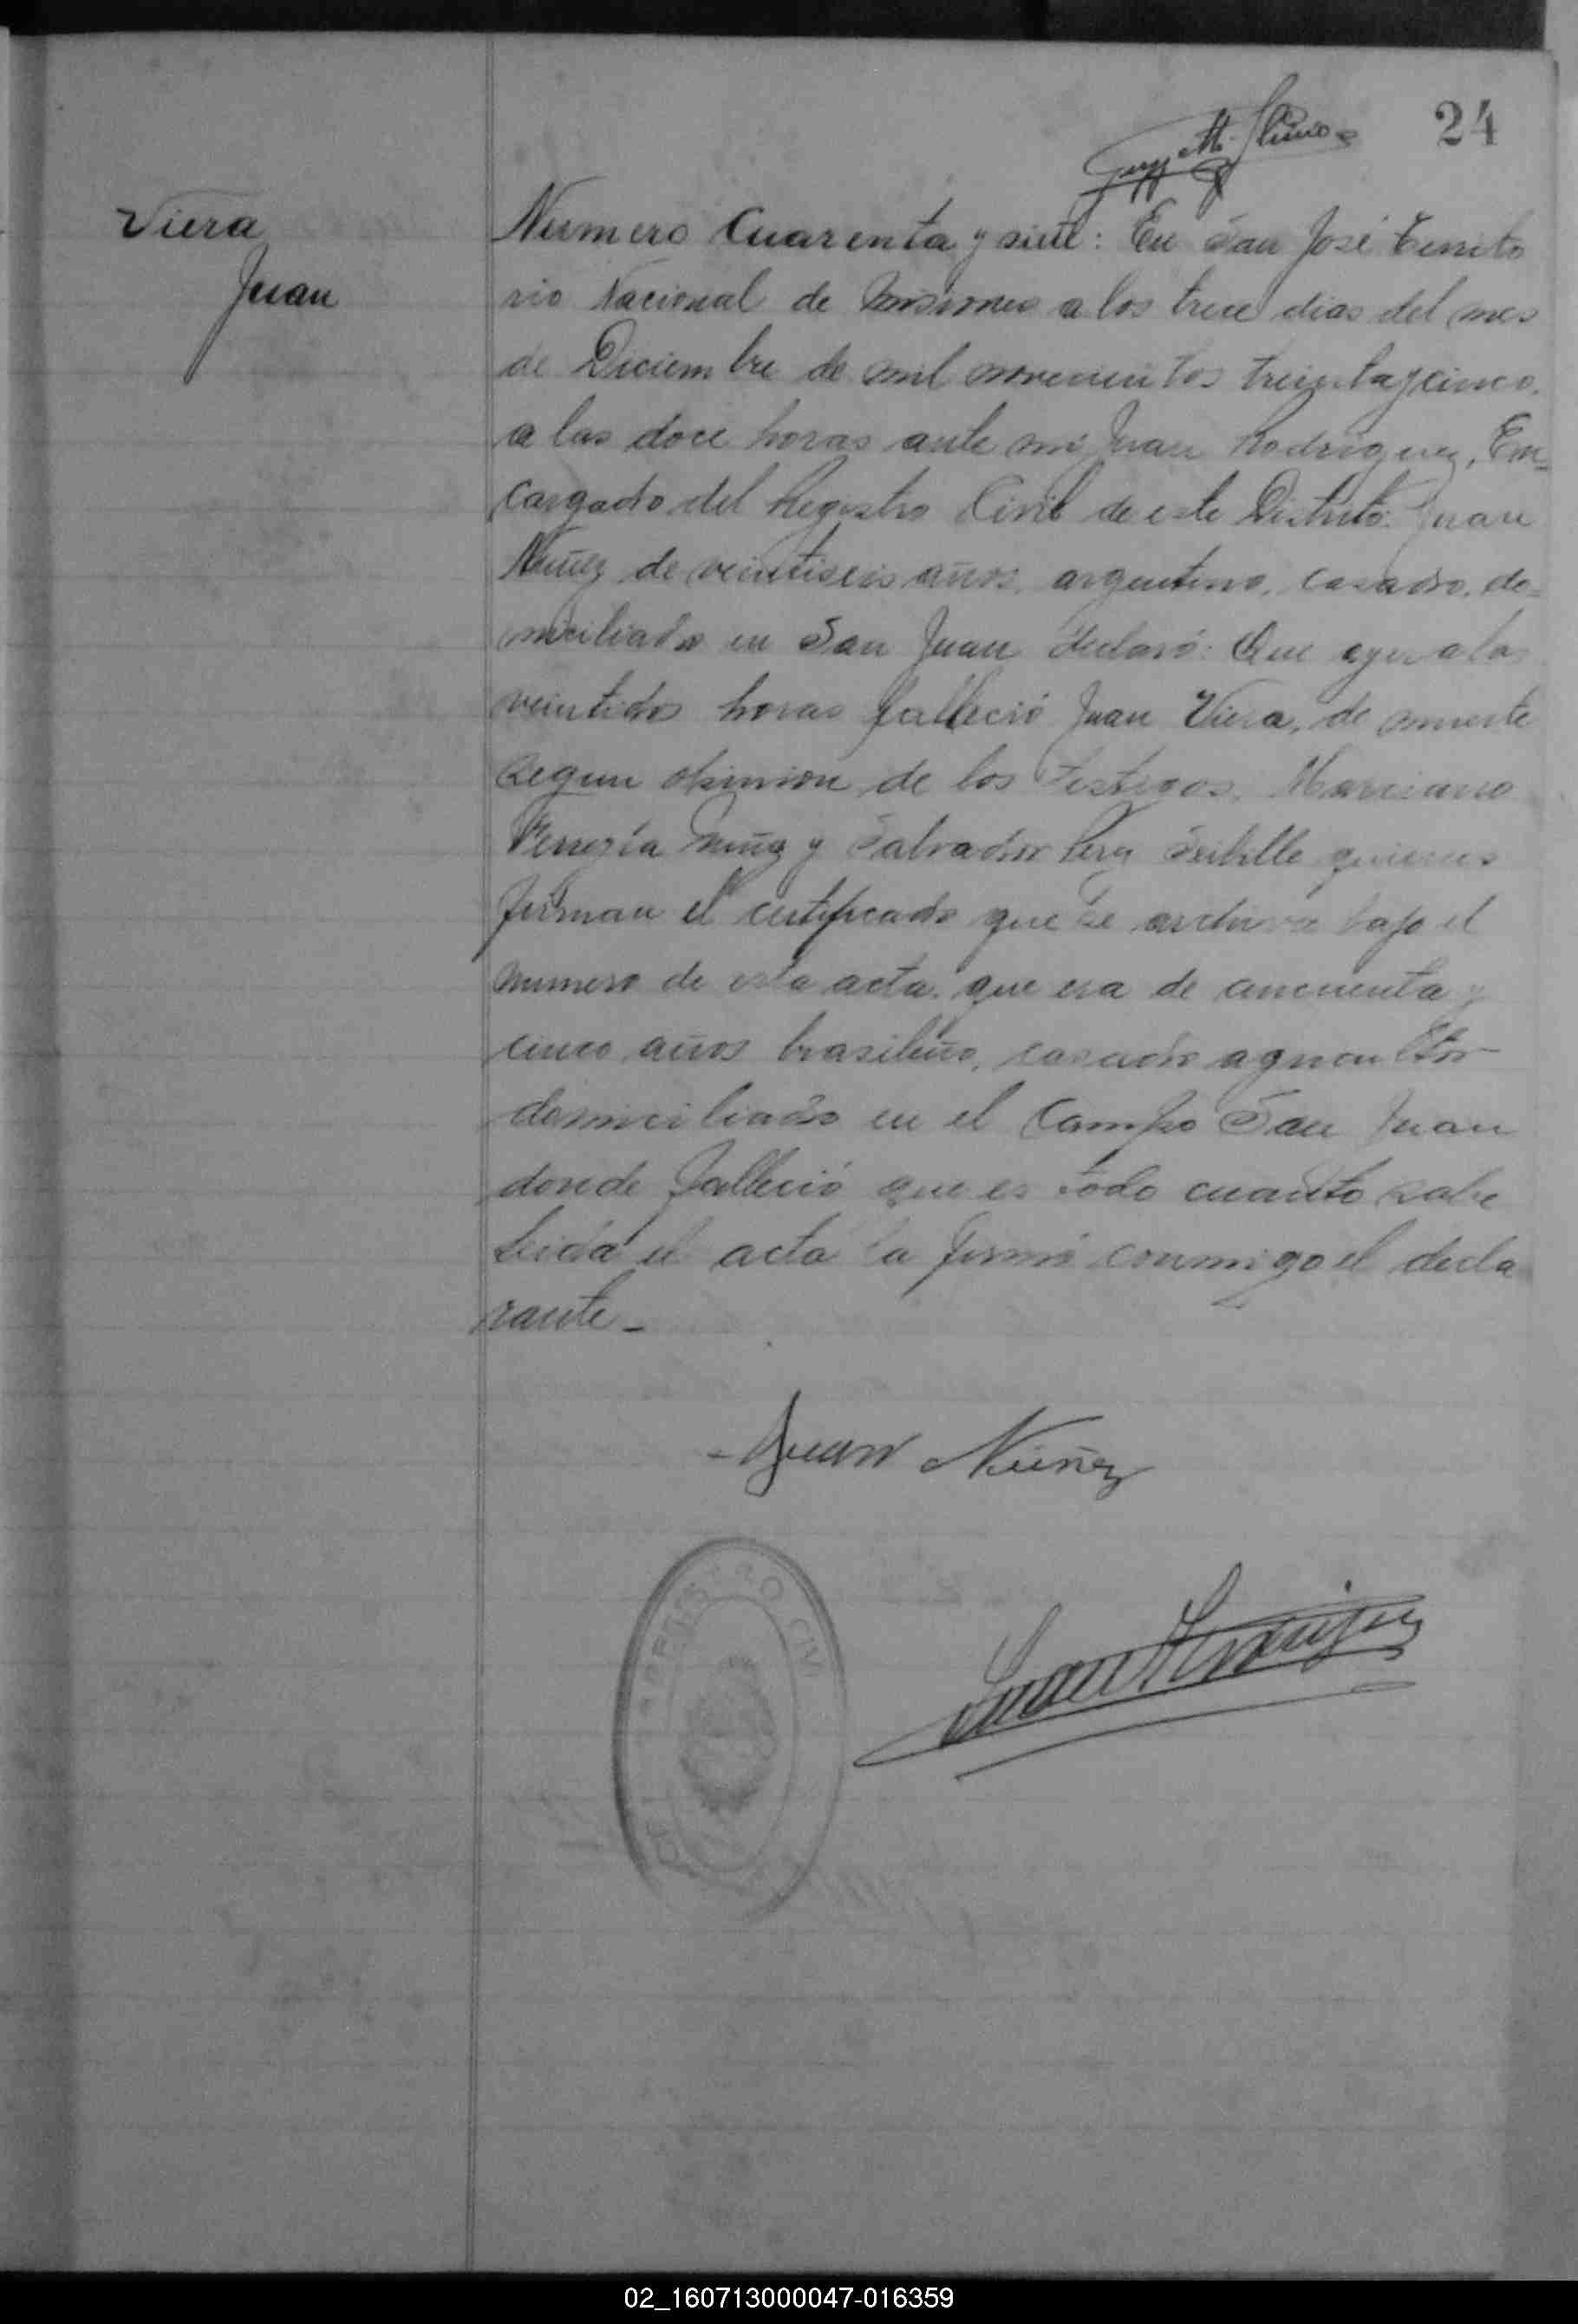 24
Viera
Juan
Numero Cuarenta y siete: En San José Territo
rio Nacional de Misiones a los trece dias del mes
de Diciembre de mil novecientos treinta y cinco.
a las doce horas ante mi Juan Rodriguez, En=
cargado del Registro Civil de este Distrito: Juan
Nuñez de veintiseis años, argentino, casado, do=
miciliado en San Juan declaró: Que ayer a las
veintidos horas falleció Juan Viera, de muerte
segun opinion de los testigos, Marciano
Nuñez y Salvador quienes
firman el certificado que se archiva bajo el
numero de esta acta. que era de cincuenta y
cinco años brasileño, casado agricultor
domiciliado en el Campo San Juan
donde falleció que es todo cuanto sabe
Leida el acta la firmó conmigo el decla
rante_
Juan Nuñez
REGISTRO CIVIL
Juan Rodriguez
02_160713000047-016359